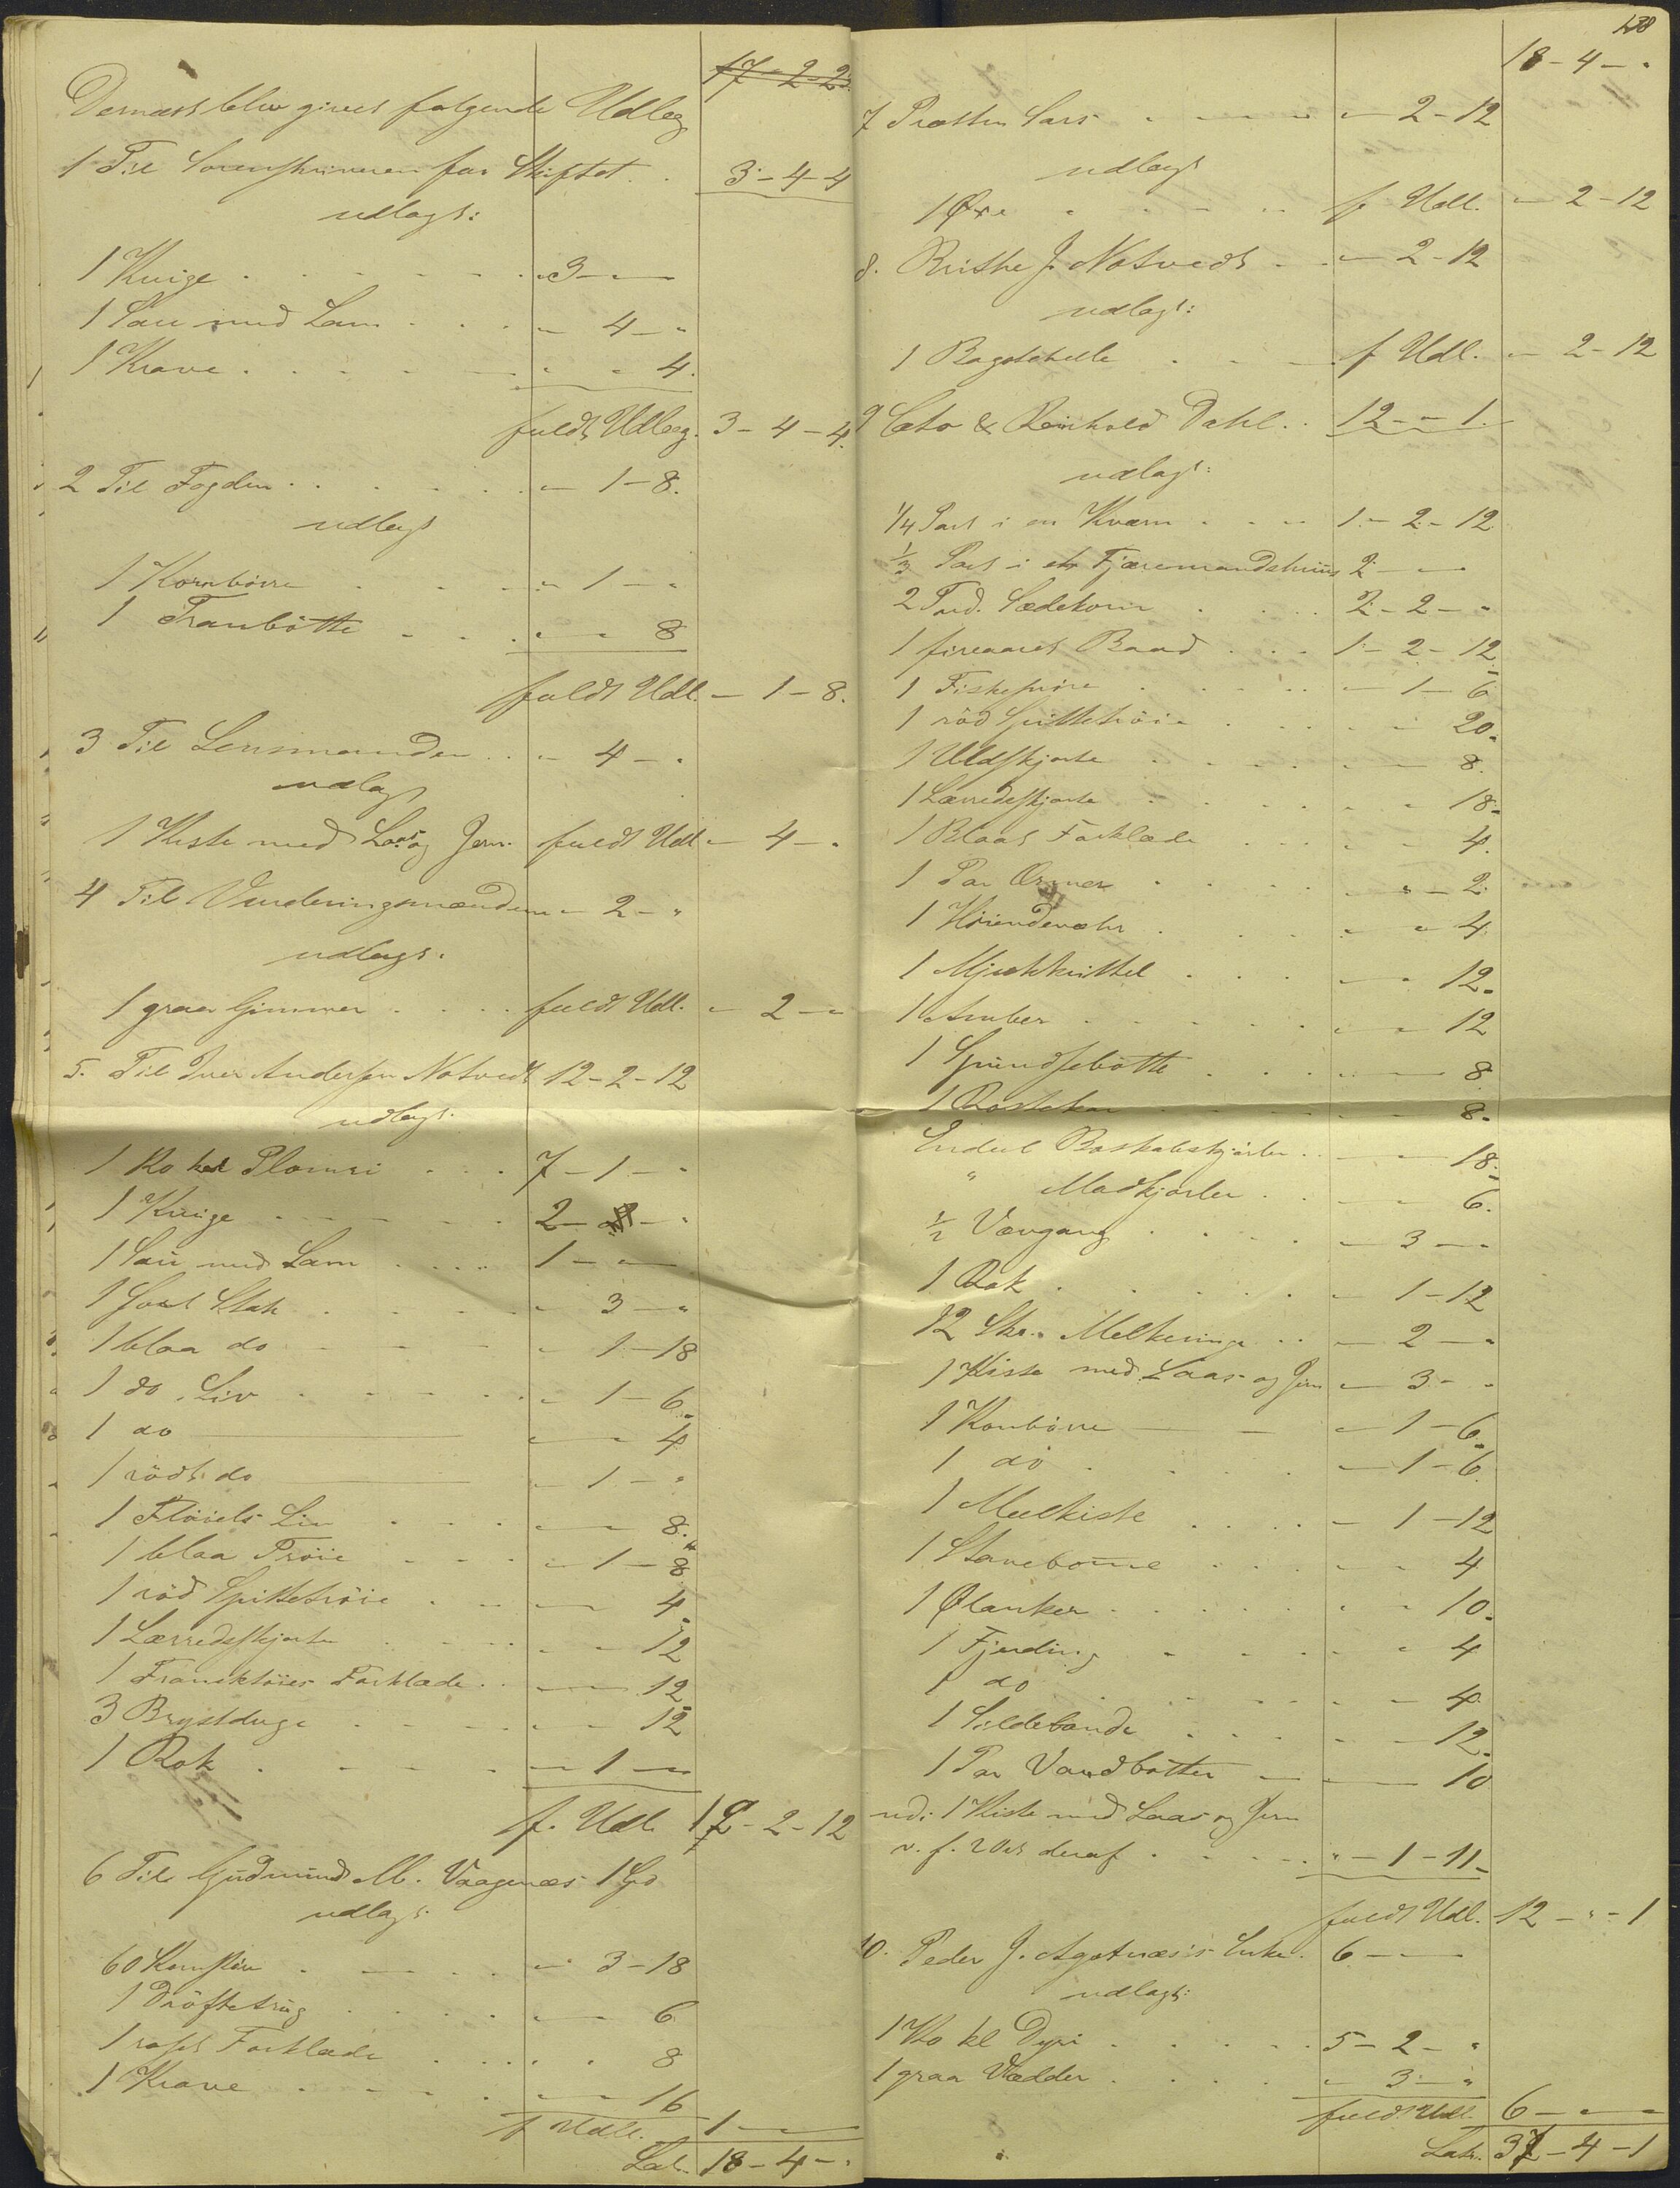 17-2-2
Dernæst blev givet følgende Udlæg
1 Til Sorenskriveren for Skiftet . . 3-4-4
udlagt:
1 Kvige . . . . . . " 3 - -
1 Sau med Lam . . . - 4 - "
1 Krave . . . . . - " - 4.
fuldt Udlæg. 3-4-4.
2 Til Fogden . . . . . - 1-8.
udlagt
1 Kornbörre . . . - 1 - "
1 Tranbötte . . . " - 8
fuldt Udl. - 1-8.
3 Til Lensmanden . . - 4 - "
udlagt
1 Kiste med Laas og Jern. fuldt Udl - 4 - "
4 Til Vurderingsmændene - 2 - "
udlagt.
1 graa Gimmer . . . . fuldt Udl. - 2 - -
5. Til Iver Andersen Notvedt 12-2-12
udlagt.
1 Ko kal Plomri . . . 7-1-"
1 Kvige . . . . . 2 - - "
1 Sau med Lam . . . . 1 - -
1 Sort Stak . . . . - 3 - "
1 blaa do - - - - 1-18
1 do Liv . . . . . - 1-6.
1 do - - - 4
1 rödt do - 1 - "
1 Flöiels Liv . . . - - 8.
1 blaa Tröie - - - 1-8
1 röd Spittetröie . . . - - 4
1 Lærredsskjorte . . . - - 12
1 Fransktöies Forklæde . . - - 12
3 Brystduge . . . . - - 12
1 Rok . . . . . - 1 - -
f. Udl. 12-2-12
6 Til Gudmund M. Vaagenæs 1 Sp
udlagt.
60 . . . . - 3-18
1 Dröftetrug . . . . - - 6
1 Forklæde . . . . " - 8
1 Krave . . . . . - - 16
f Udl. 1 - -
Lat. 18-4-"
138
18-4-"
7 Præsten Sars . . . . . - 2-12
udlagt
1 Öxe . . . . . f Udl. - 2-12
8. Brithe J. Notvedt . . - 2-12
udlagt:
1 Bagstehelle . . . f Udl. - 2-12
9 Cato & Reinhold Dahl . . 12 - - 1.
udlagt:
1/4 Part i en Kværn . . . 1-2-12.
1/3 Part i et Fjæremandshuus 2 - -
2 Tnd. Sædekorn . . . . 2-2-"
1 fireaaret Baad . . . 1-2-12
1 . . . . . - 1-6
1 röd Spittetröie . . . . - - 20.
1 Uldskjorte . . . . . - - 8.
1 Lærredsskjorte . . . . - - 18.
1 Blaat Forklæde . . . - - 4.
1 Par Ærmer . . . . - " - 2.
1 Hÿendevahr . . . . - " 4.
1 . . . - - 12.
1 Amber . . . . . . - - 12
1 Spundsebötte . . . - - 8
1 Rostekar . . . . - - 8.
Endeel Boskabskjörler . . - - 18.
" Madkjörler . . - - 6.
1/2 Vævgang . . . . - 3 - "
1 Rok . . . . . . - 1-12
12 Stk. Melkeringe . . - 2 - "
1 Kiste med Laas og Jern - 3 - "
1 Kornbörre - - - 1-6.
1 do . . . . . - 1-6.
1 Meelkiste . . . . - 1-12
1 . . . - - 4
1 Ölanker . . . . . " - 10.
1 Fjerding . . . . . - " 4
1 do . . . . . - - 4.
1 Sildetönde . . . . - - 12.
1 Par Vandbötter - - - 10
udi 1 Kiste med Laas og Jern
v. f. 2 Ort deraf . . . . . " - 1-11.
fuldt Udl. 12-"-1
10. Peder J. Agotnæs's Enke. 6 - -
udlagt:
1 Ko kl Dyri . . . . . 5-2-"
1 graa Vædder . . . . - 3 - "
fuldt Udl. 6 - - -
Lat. 37-4-1